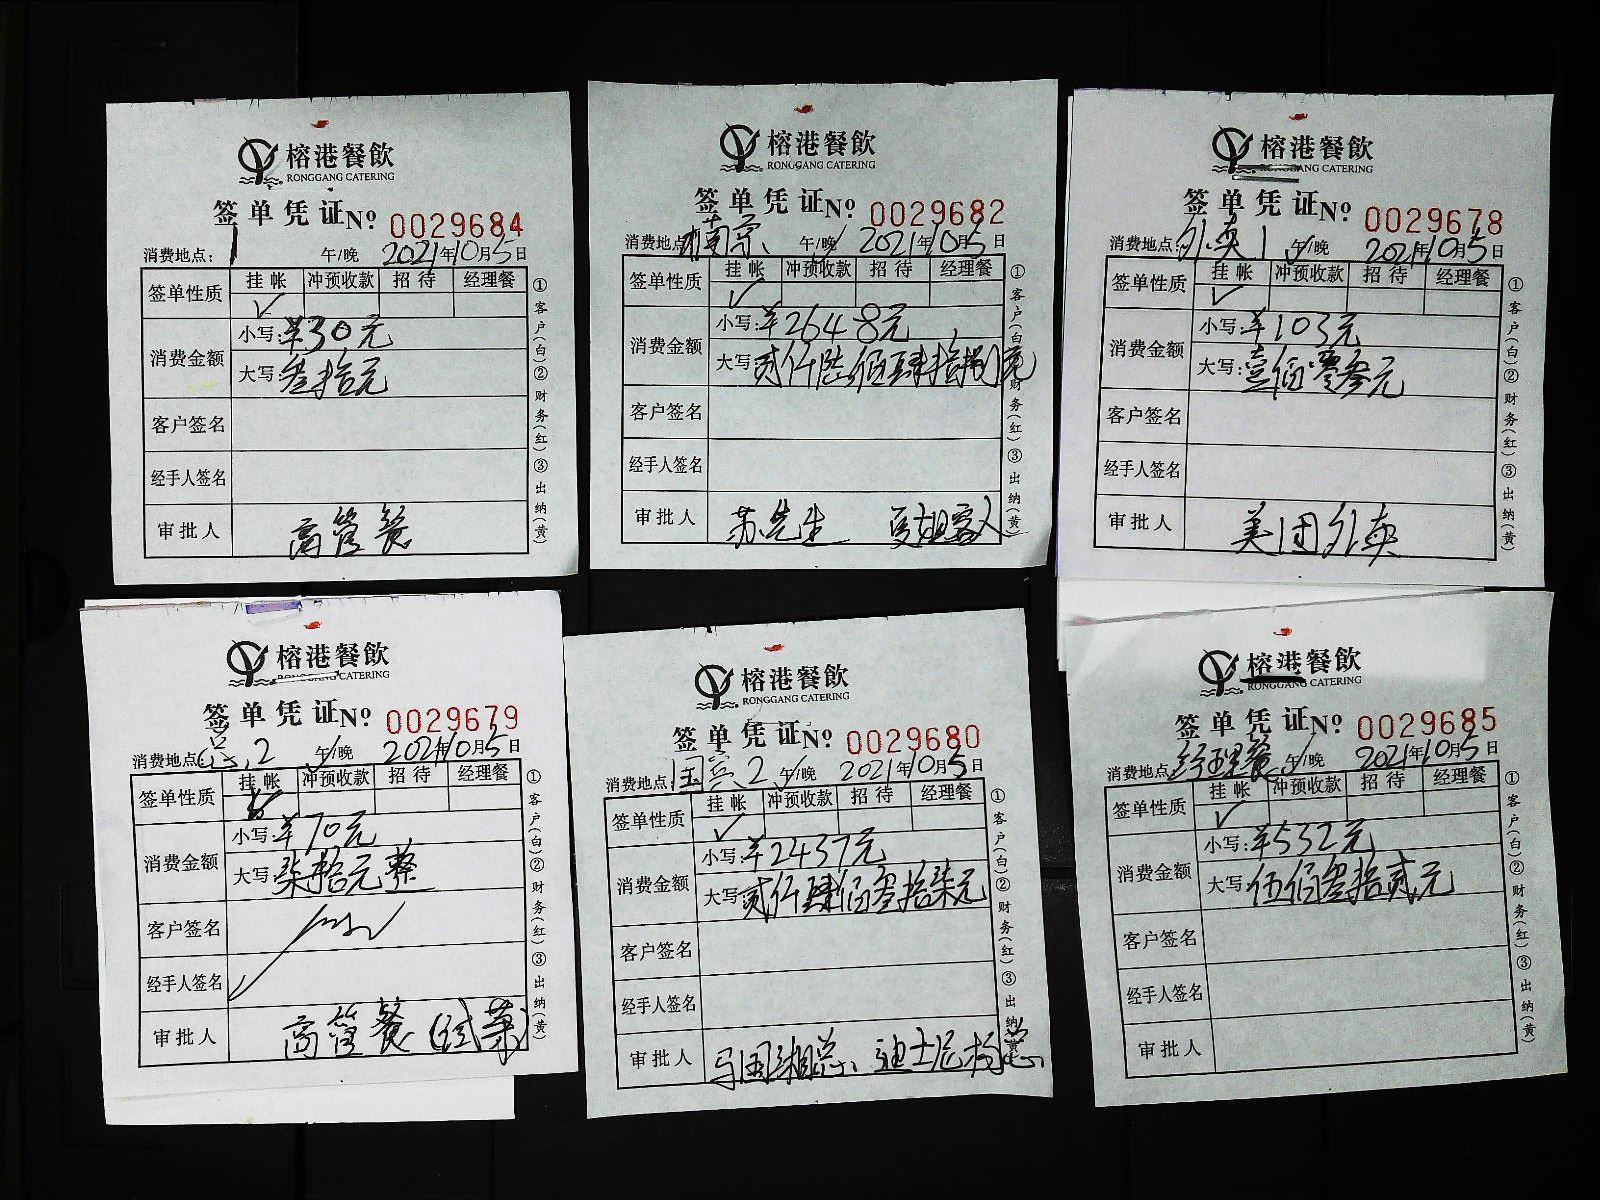 榕港餐飲
RONGGANG CATERING
签单凭证 № 0029684
消费地点: 1 午/晚 2021年10月5日
签单性质 挂帐 冲预收款 招待 经理餐
✓
消费金额 小写: ¥30元
大写: 叁拾元
客户签名
经手人签名
审批人 高管餐
①客户(白)②财务(红)③出纳(黄)
榕港餐飲
RONGGANG CATERING
签单凭证 № 0029682
消费地点: 南京 午/晚 2021年10月5日
签单性质 挂帐 冲预收款 招待 经理餐
✓
消费金额 小写: ¥2648元
大写: 贰仟陆佰肆拾捌元
客户签名
经手人签名
审批人 苏先生
①客户(白)②财务(红)③出纳(黄)
榕港餐飲
RONGGANG CATERING
签单凭证 № 0029678
消费地点: 外卖1 午/晚 2021年10月5日
签单性质 挂帐 冲预收款 招待 经理餐
✓
消费金额 小写: ¥103元
大写: 壹佰零叁元
客户签名
经手人签名
审批人 美团外卖
①客户(白)②财务(红)③出纳(黄)
榕港餐飲
RONGGANG CATERING
签单凭证 № 0029679
消费地点: 2 午/晚 2021年10月5日
签单性质 挂帐 冲预收款 招待 经理餐
消费金额 小写: ¥70元
大写: 柒拾元整
客户签名
经手人签名
审批人 高管餐(试菜)
①客户(白)②财务(红)③出纳(黄)
榕港餐飲
RONGGANG CATERING
签单凭证 № 0029680
消费地点: 国宾2 午/晚 2021年10月5日
签单性质 挂帐 冲预收款 招待 经理餐
✓
消费金额 小写: ¥2437元
大写: 贰仟肆佰叁拾柒元
客户签名
经手人签名
审批人 马国湘总、迪士尼杨总
①客户(白)②财务(红)③出纳(黄)
榕港餐飲
RONGGANG CATERING
签单凭证 № 0029685
消费地点: 经理餐 午/晚 2021年10月5日
签单性质 挂帐 冲预收款 招待 经理餐
✓
消费金额 小写: ¥532元
大写: 伍佰叁拾贰元
客户签名
经手人签名
审批人
①客户(白)②财务(红)③出纳(黄)